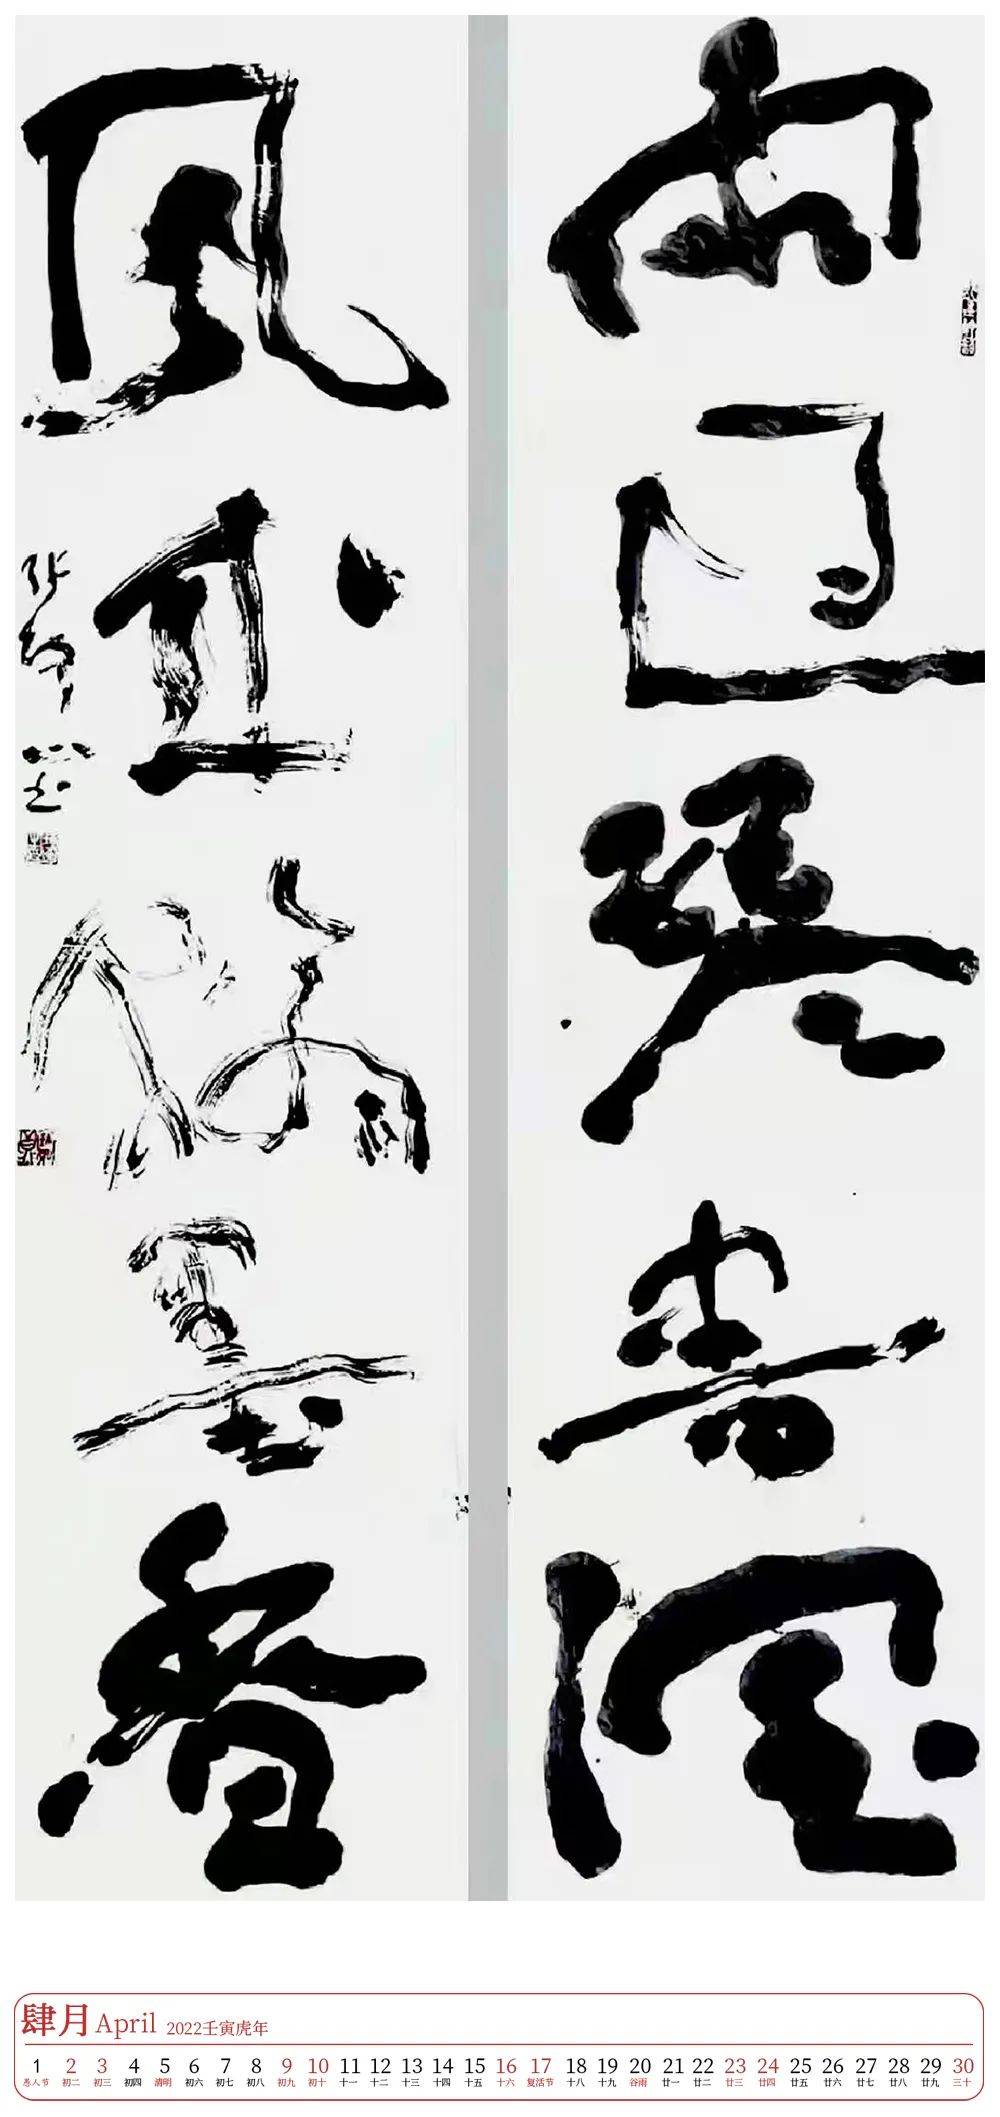 雨过琴書润
风来翰墨香
肆月 April 2022壬寅虎年
1 2 3 4 5 6 7 8 9 10 11 12 13 14 15 16 17 18 19 20 21 22 23 24 25 26 27 28 29 30
愚人节 初二 初三 初四 清明 初六 初七 初八 初九 初十 十一 十二 十三 十四 十五 十六 复活节 十八 十九 谷雨 廿一 廿二 廿三 廿四 廿五 廿六 廿七 廿八 廿九 三十